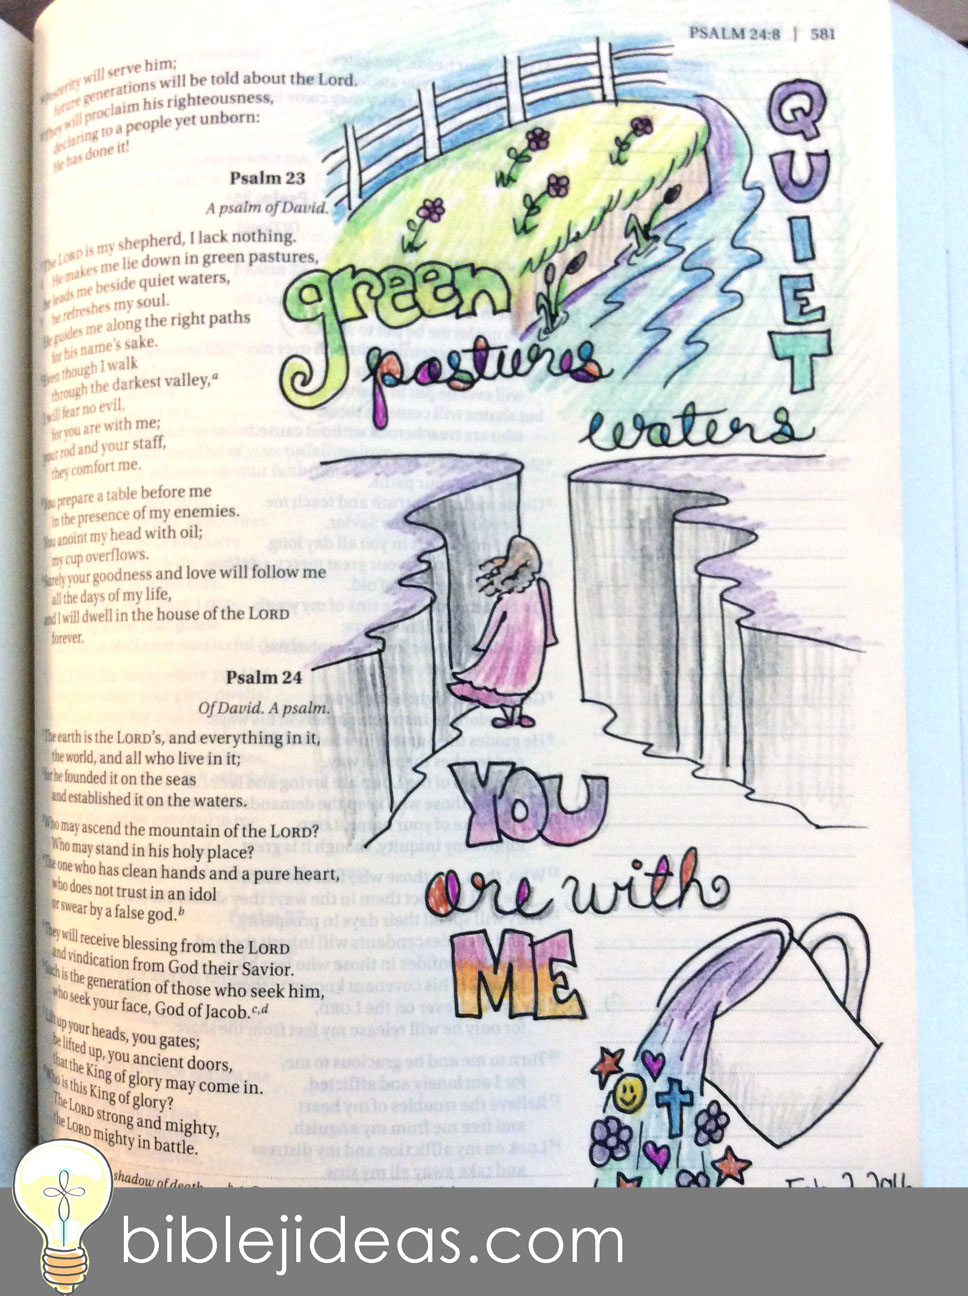 PSALM 24:8 | 581
posterity will serve him;
future generations will be told about the Lord.
They will proclaim his righteousness,
declaring to a people yet unborn:
He has done it!
Psalm 23
A psalm of David.
The LORD is my shepherd, I lack nothing.
He makes me lie down in green pastures,
he leads me beside quiet waters,
he refreshes my soul.
He guides me along the right paths
for his name's sake.
Even though I walk
through the darkest valley,a
I will fear no evil,
for you are with me;
your rod and your staff,
they comfort me.
You prepare a table before me
in the presence of my enemies.
You anoint my head with oil;
my cup overflows.
Surely your goodness and love will follow me
all the days of my life,
and I will dwell in the house of the LORD
forever.
Psalm 24
Of David. A psalm.
The earth is the LORD's, and everything in it,
the world, and all who live in it;
for he founded it on the seas
and established it on the waters.
Who may ascend the mountain of the LORD?
Who may stand in his holy place?
The one who has clean hands and a pure heart,
who does not trust in an idol
or swear by a false god.b
They will receive blessing from the LORD
and vindication from God their Savior.
Such is the generation of those who seek him,
who seek your face, God of Jacob.c,d
Lift up your heads, you gates;
be lifted up, you ancient doors,
that the King of glory may come in.
Who is this King of glory?
The LORD strong and mighty,
the LORD mighty in battle.
shadow of death
green
pastures
QUIET
waters
YOU
are with
ME
biblejideas.com